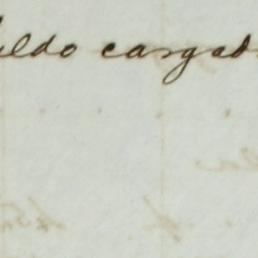 ildo cargad